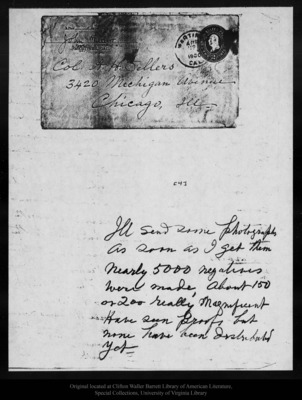 Col A H Sellers
3420 Michigan Avenue
Chicago, Ill
MARTINEZ
CAL.
043
Ill send some photographs
as soon as I get them
Nearly 5000 negatives
were made, about 150
or 200 really magnificent
Have seen proofs but
none have been distributed
yet
Original located at Clifton Waller Barrett Library of American Literature,
Special Collections, University of Virginia Library